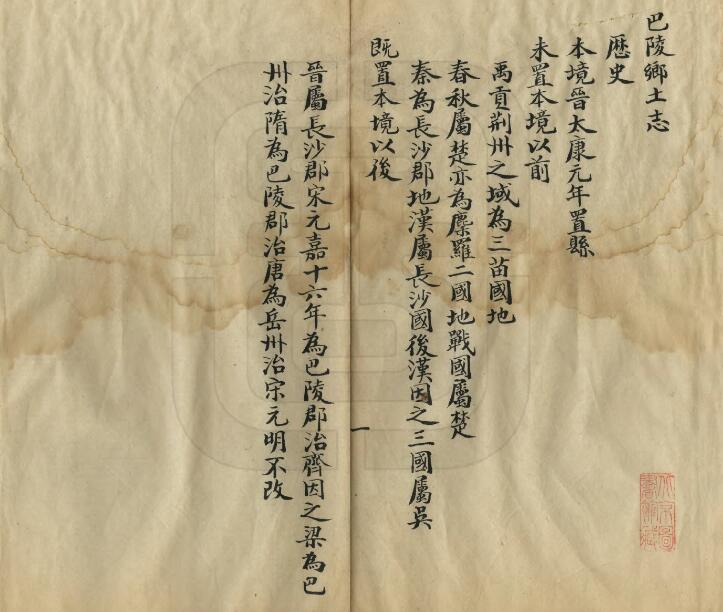 巴陵鄉土志
歷史
本境晉太康元年置縣
未置本境以前
禹貢荆州之域為三苗國地
春秋屬楚亦為麋羅二國地戰國屬楚
秦為長沙郡地漢屬長沙國後漢因之三國屬吳
既置本境以後
一
晉屬長沙郡宋元嘉十六年為巴陵郡治齊因之梁為巴
州治隋為巴陵郡治唐為岳州治宋元明不改